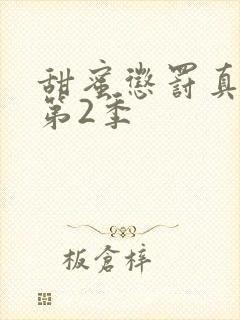 甜蜜懲罰真
第2季
板倉梓